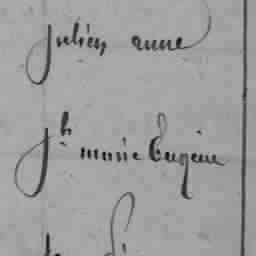 julien anne
jh marie Eugène